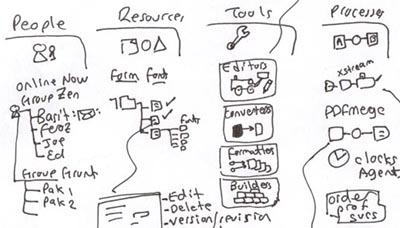 People
Online Now
Group Zen
Basit:
Feroz
Joe
Ed
Group Grunt
Pak 1
Pak 2
Resources
Form Fonts
Fonts
Edit
Delete
Version/revision
Tools
Editors
Converters
Formatters
Builders
Processes
A
B
xstream
PDFmerge
clocks
Agent
order
prof
svcs